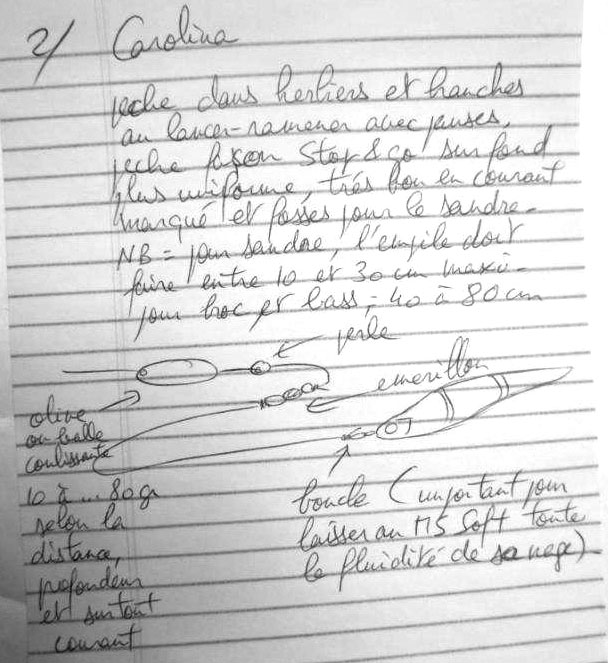 2/ Carolina
pêche dans herbiers et branches
au lancer-ramener avec pauses,
pêche façon Stop & Go sur fond
plus uniforme, très bon en courant
marqué et fosses pour le sandre.
NB = pour sandre, l'empile doit
faire entre 10 et 30 cm maxi.
pour broc et bass ; 40 à 80 cm
perle
emerillon
olive
ou balle
coulissante
10 à ... 80 gr
selon la
distance,
profondeur
et surtout
courant
boucle (important pour
laisser au MS Soft toute
la fluidité de sa nage)